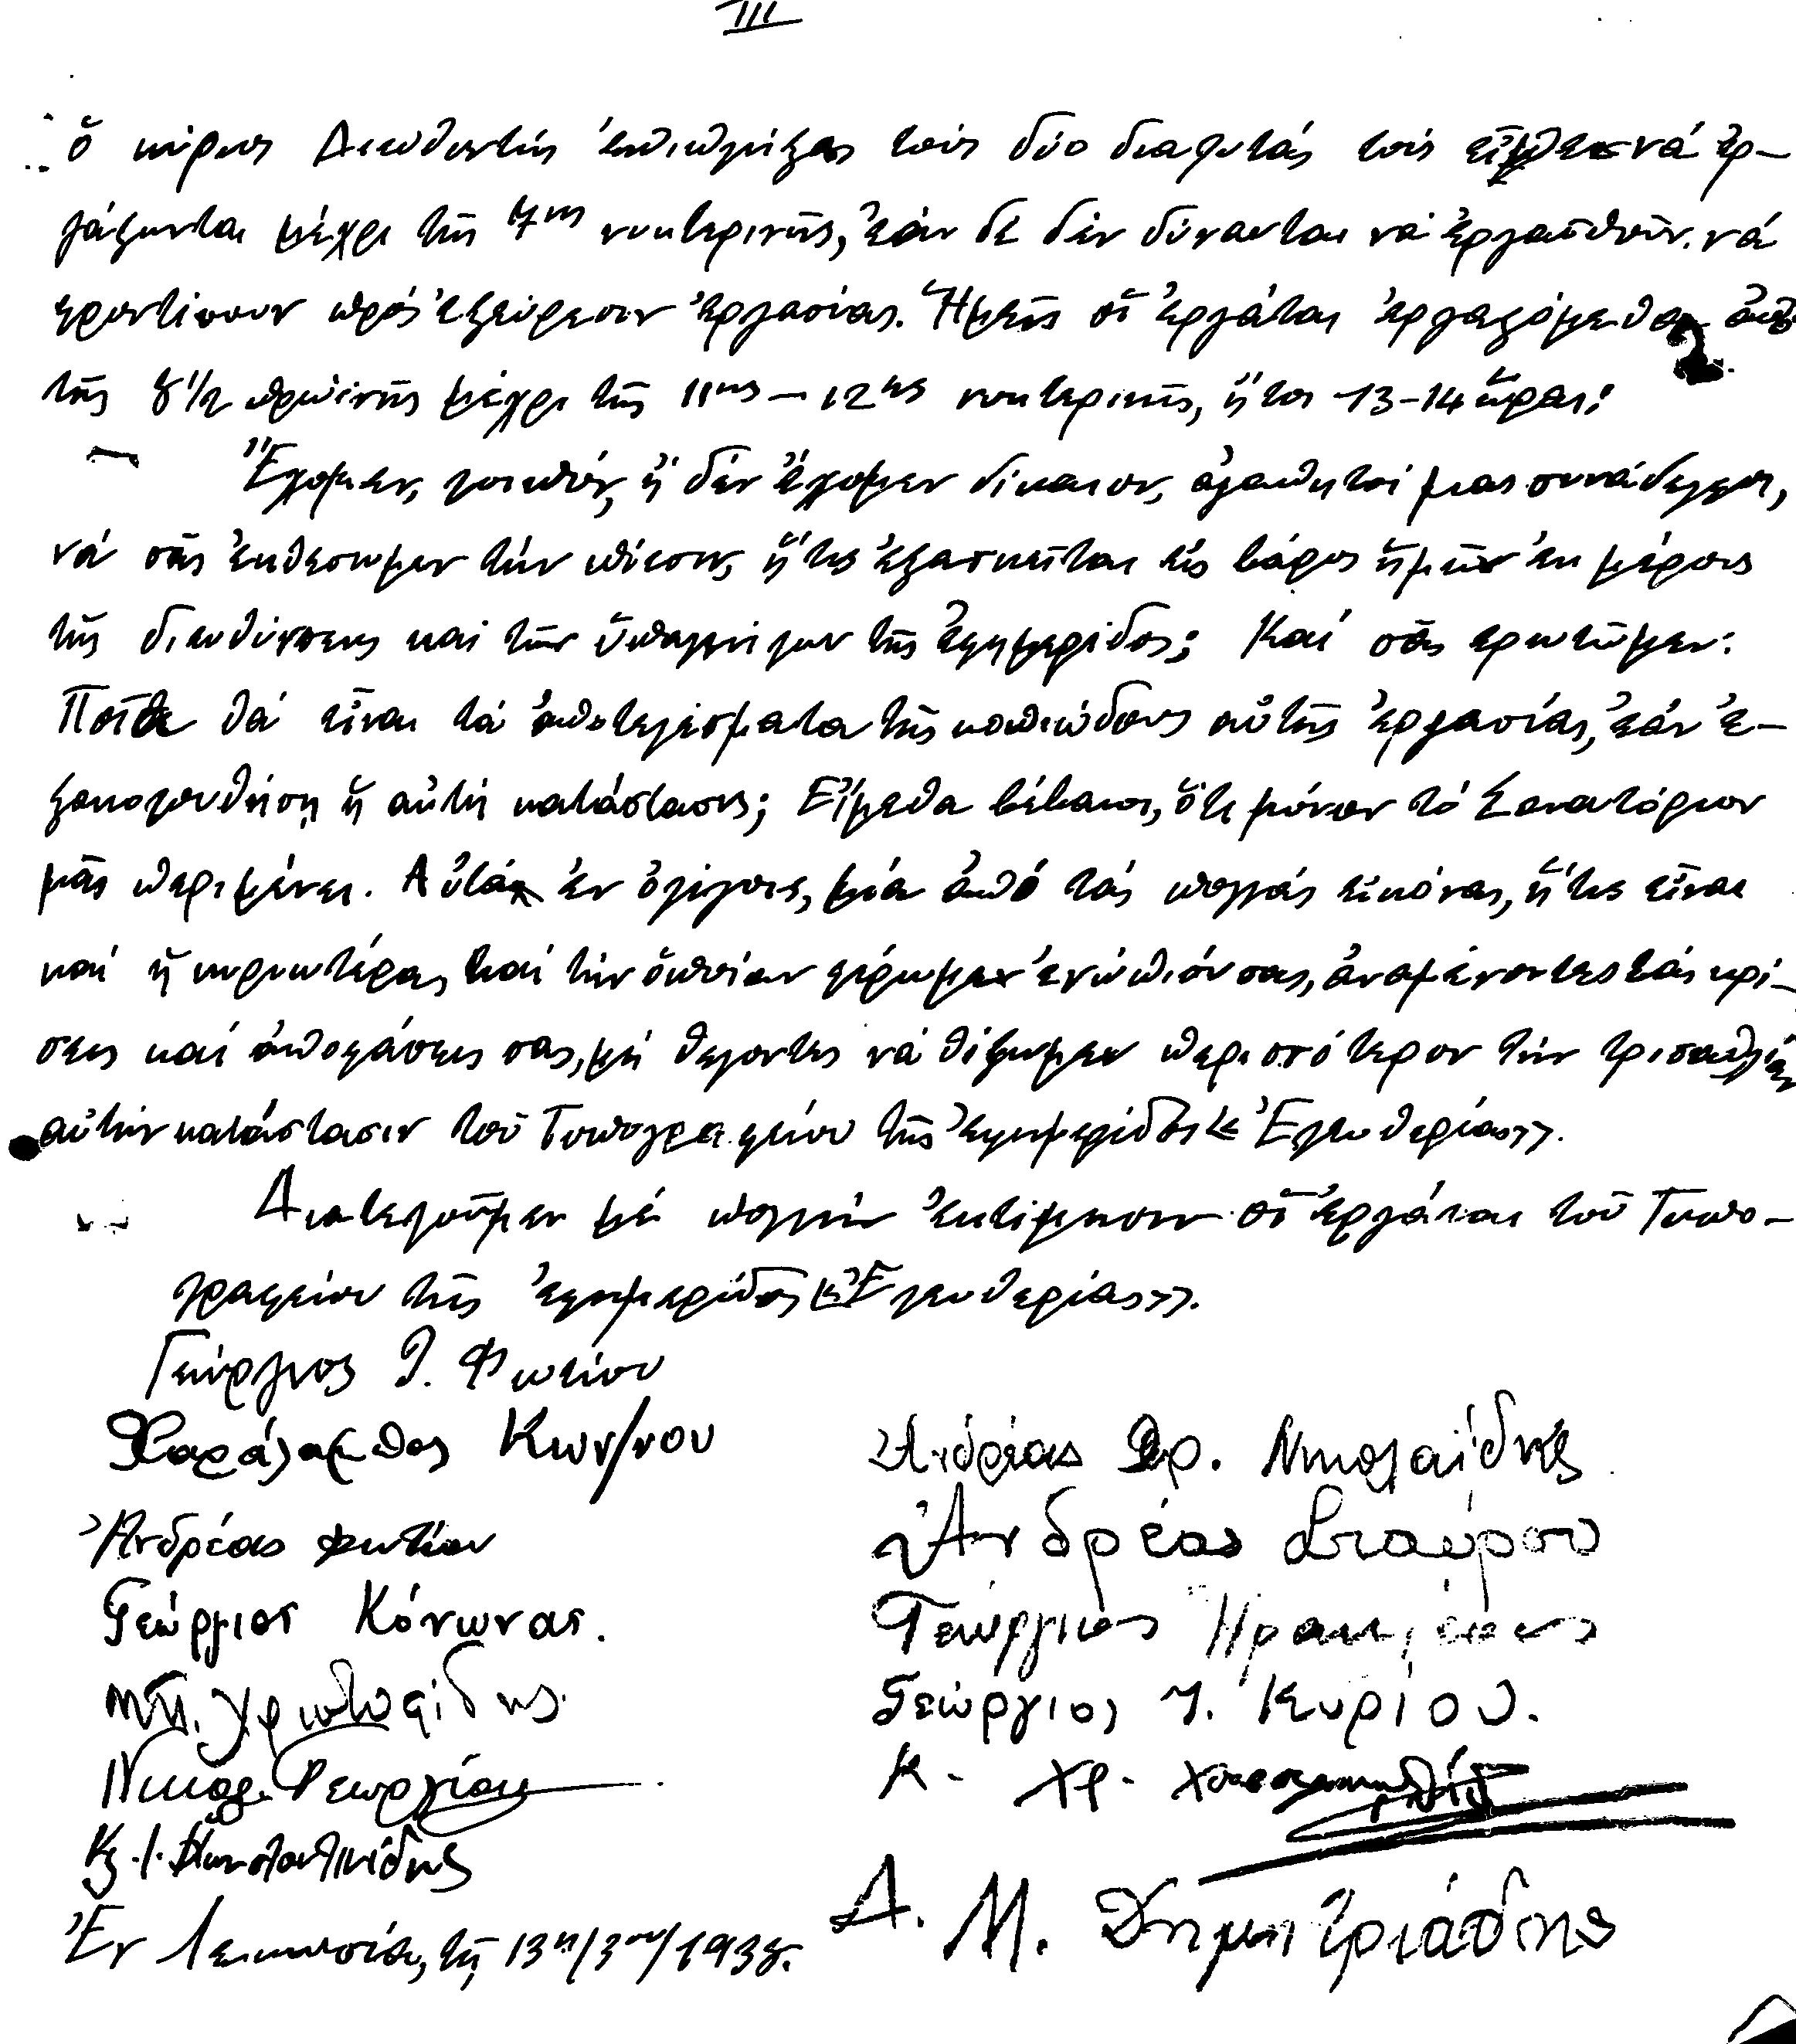 III
ὁ κύριος Διευθυντής ἐπιπλήξας τούς δύο διαφυτάς τούς εἶπεν νά ἐρ-
γάζωνται μέχρι τῆς 7ης νυκτερινῆς, ἐάν δέ δέν δύνανται νά ἐργασθοῦν. νά
φροντίσουν πρός ἐξεύρεσιν ἐργασίας. Ἡμεῖς οἱ ἐργάται ἐργαζόμεθα ἀπό
τῆς 8 1/2 πρωϊνῆς μέχρι τῆς 11ης – 12ης νυκτερινῆς, ἤτοι -13-14 ὥρας!
Ἔχομεν, λοιπόν, ἤ δέν ἔχομεν δίκαιον, ἀγαπητοί μας συνάδελφοι,
νά σᾶς ἐκθέσωμεν τήν πίεσιν, ἥτις ἐξασκεῖται εἰς βάρος ἡμῶν ἐκ μέρους
τῆς διευθύνσεως καί τῶν ὑπαλλήλων τῆς ἐφημερίδος; Καί σᾶς ἐρωτῶμεν:
Ποῖα θά εἶναι τά ἀποτελέσματα τῆς κοπιώδους αὐτῆς ἐργασίας, ἐάν ἐ-
ξακολουθήσῃ ἡ αὐτή κατάστασις; Εἴμεθα βέβαιοι, ὅτι μόνον τό Σανατόριον
μᾶς περιμένει. Αὐτά ἐν ὀλίγοις, μιά ἀπό τάς πολλάς εἰκόνας, ἥτις εἶναι
καί ἡ κυριωτέρα, καί τήν ὁποίαν φέρωμεν ἐνώπιόν σας, ἀναμένοντες τάς κρί-
σεις καί ἀποφάσεις σας, μή θέλοντες νά θίξωμεν περισσότερον τήν τρισαθλίαν
αὐτήν κατάστασιν τοῦ Τυπογραφείου τῆς ἐφημερίδος «Ἐλευθερίας».
Διατελοῦμεν μέ πολλήν ἐκτίμησιν οἱ ἐργάται τοῦ Τυπο-
γραφείου τῆς ἐφημερίδος «Ἐλευθερίας».
Γεώργιος Ι. Φωτίου
Χαράλαμπος Κων/νου
Ἀνδρέας Φωτίου
Γεώργιος Κόνωνας.
Μπ. Χριστοφίδης.
Νικολ. Γεωργίου
Κ. Ι. Κωνσταντινίδης
Ἐν Λευκωσίᾳ, τῇ 13ῃ/3ου/1938.
Ἀνδρέας Χρ. Νικολαΐδης
Ἀνδρέας Σταύρου
Γεώργιος Ἡρακλέους
Γεώργιος Ι. Κυρίου.
Κ. Χρ.
Δ. Μ. Δημητριάδης